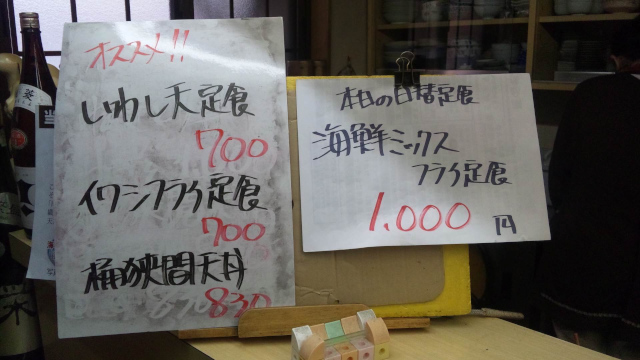 オススメ!!
いわし天定食
700
イワシフライ定食
700
桶狭間天丼
830
本日の日替定食
海鮮ミックス
フライ定食
1.000円